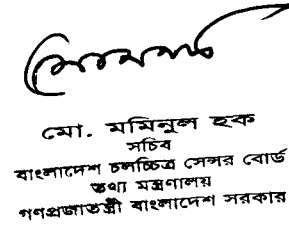 মো. মমিনুল হক
সচিব
বাংলাদেশ চলচ্চিত্র সেন্সর বোর্ড
তথ্য মন্ত্রণালয়
গণপ্রজাতন্ত্রী বাংলাদেশ সরকার